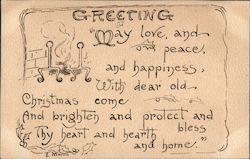 GREETING
May love, and
peace,
and happiness,
With dear old
Christmas come
And brighten and protect and
bless
Thy heart and hearth
and home.